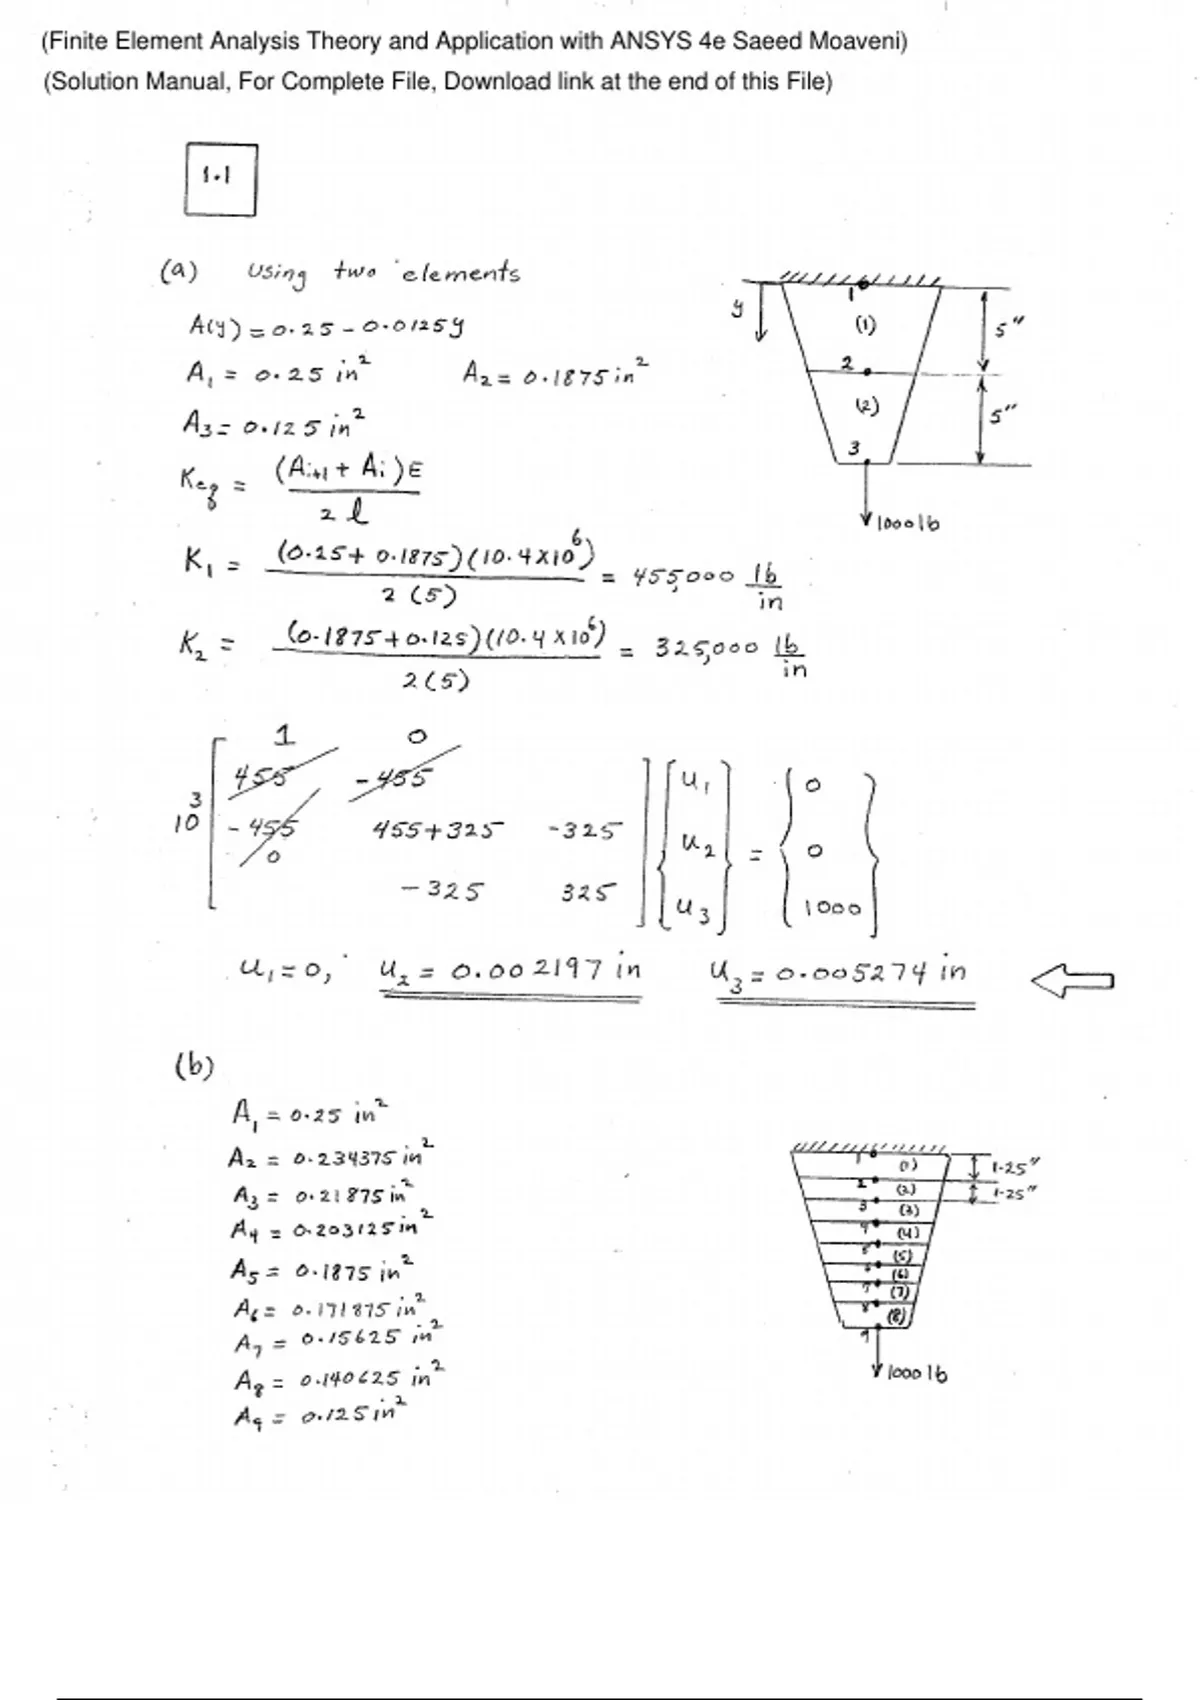 (Finite Element Analysis Theory and Application with ANSYS 4e Saeed Moaveni)
(Solution Manual, For Complete File, Download link at the end of this File)
1.1
(a) Using two elements
A(y) = 0.25 - 0.0125y
A₁ = 0.25 in² A₂ = 0.1875 in²
A₃ = 0.125 in²
Keq = (Aᵢ₊₁ + Aᵢ)E / 2l
K₁ = (0.25 + 0.1875)(10.4x10⁶) / 2(5) = 455,000 lb/in
K₂ = (0.1875 + 0.125)(10.4x10⁶) / 2(5) = 325,000 lb/in
y
1
(1)
5"
2
(2)
5"
3
1000 lb
1 0
455 -455
10³ -455 455+325 -325
0
-325 325
u₁ 0
u₂ = 0
u₃ 1000
u₁ = 0, u₂ = 0.002197 in u₃ = 0.005274 in
(b)
A₁ = 0.25 in²
A₂ = 0.234375 in²
A₃ = 0.21875 in²
A₄ = 0.203125 in²
A₅ = 0.1875 in²
A₆ = 0.171875 in²
A₇ = 0.15625 in²
A₈ = 0.140625 in²
A₉ = 0.125 in²
1 (1) 1.25"
2 (2) 1.25"
3 (3)
4 (4)
5 (5)
6 (6)
7 (7)
8 (8)
9
1000 lb